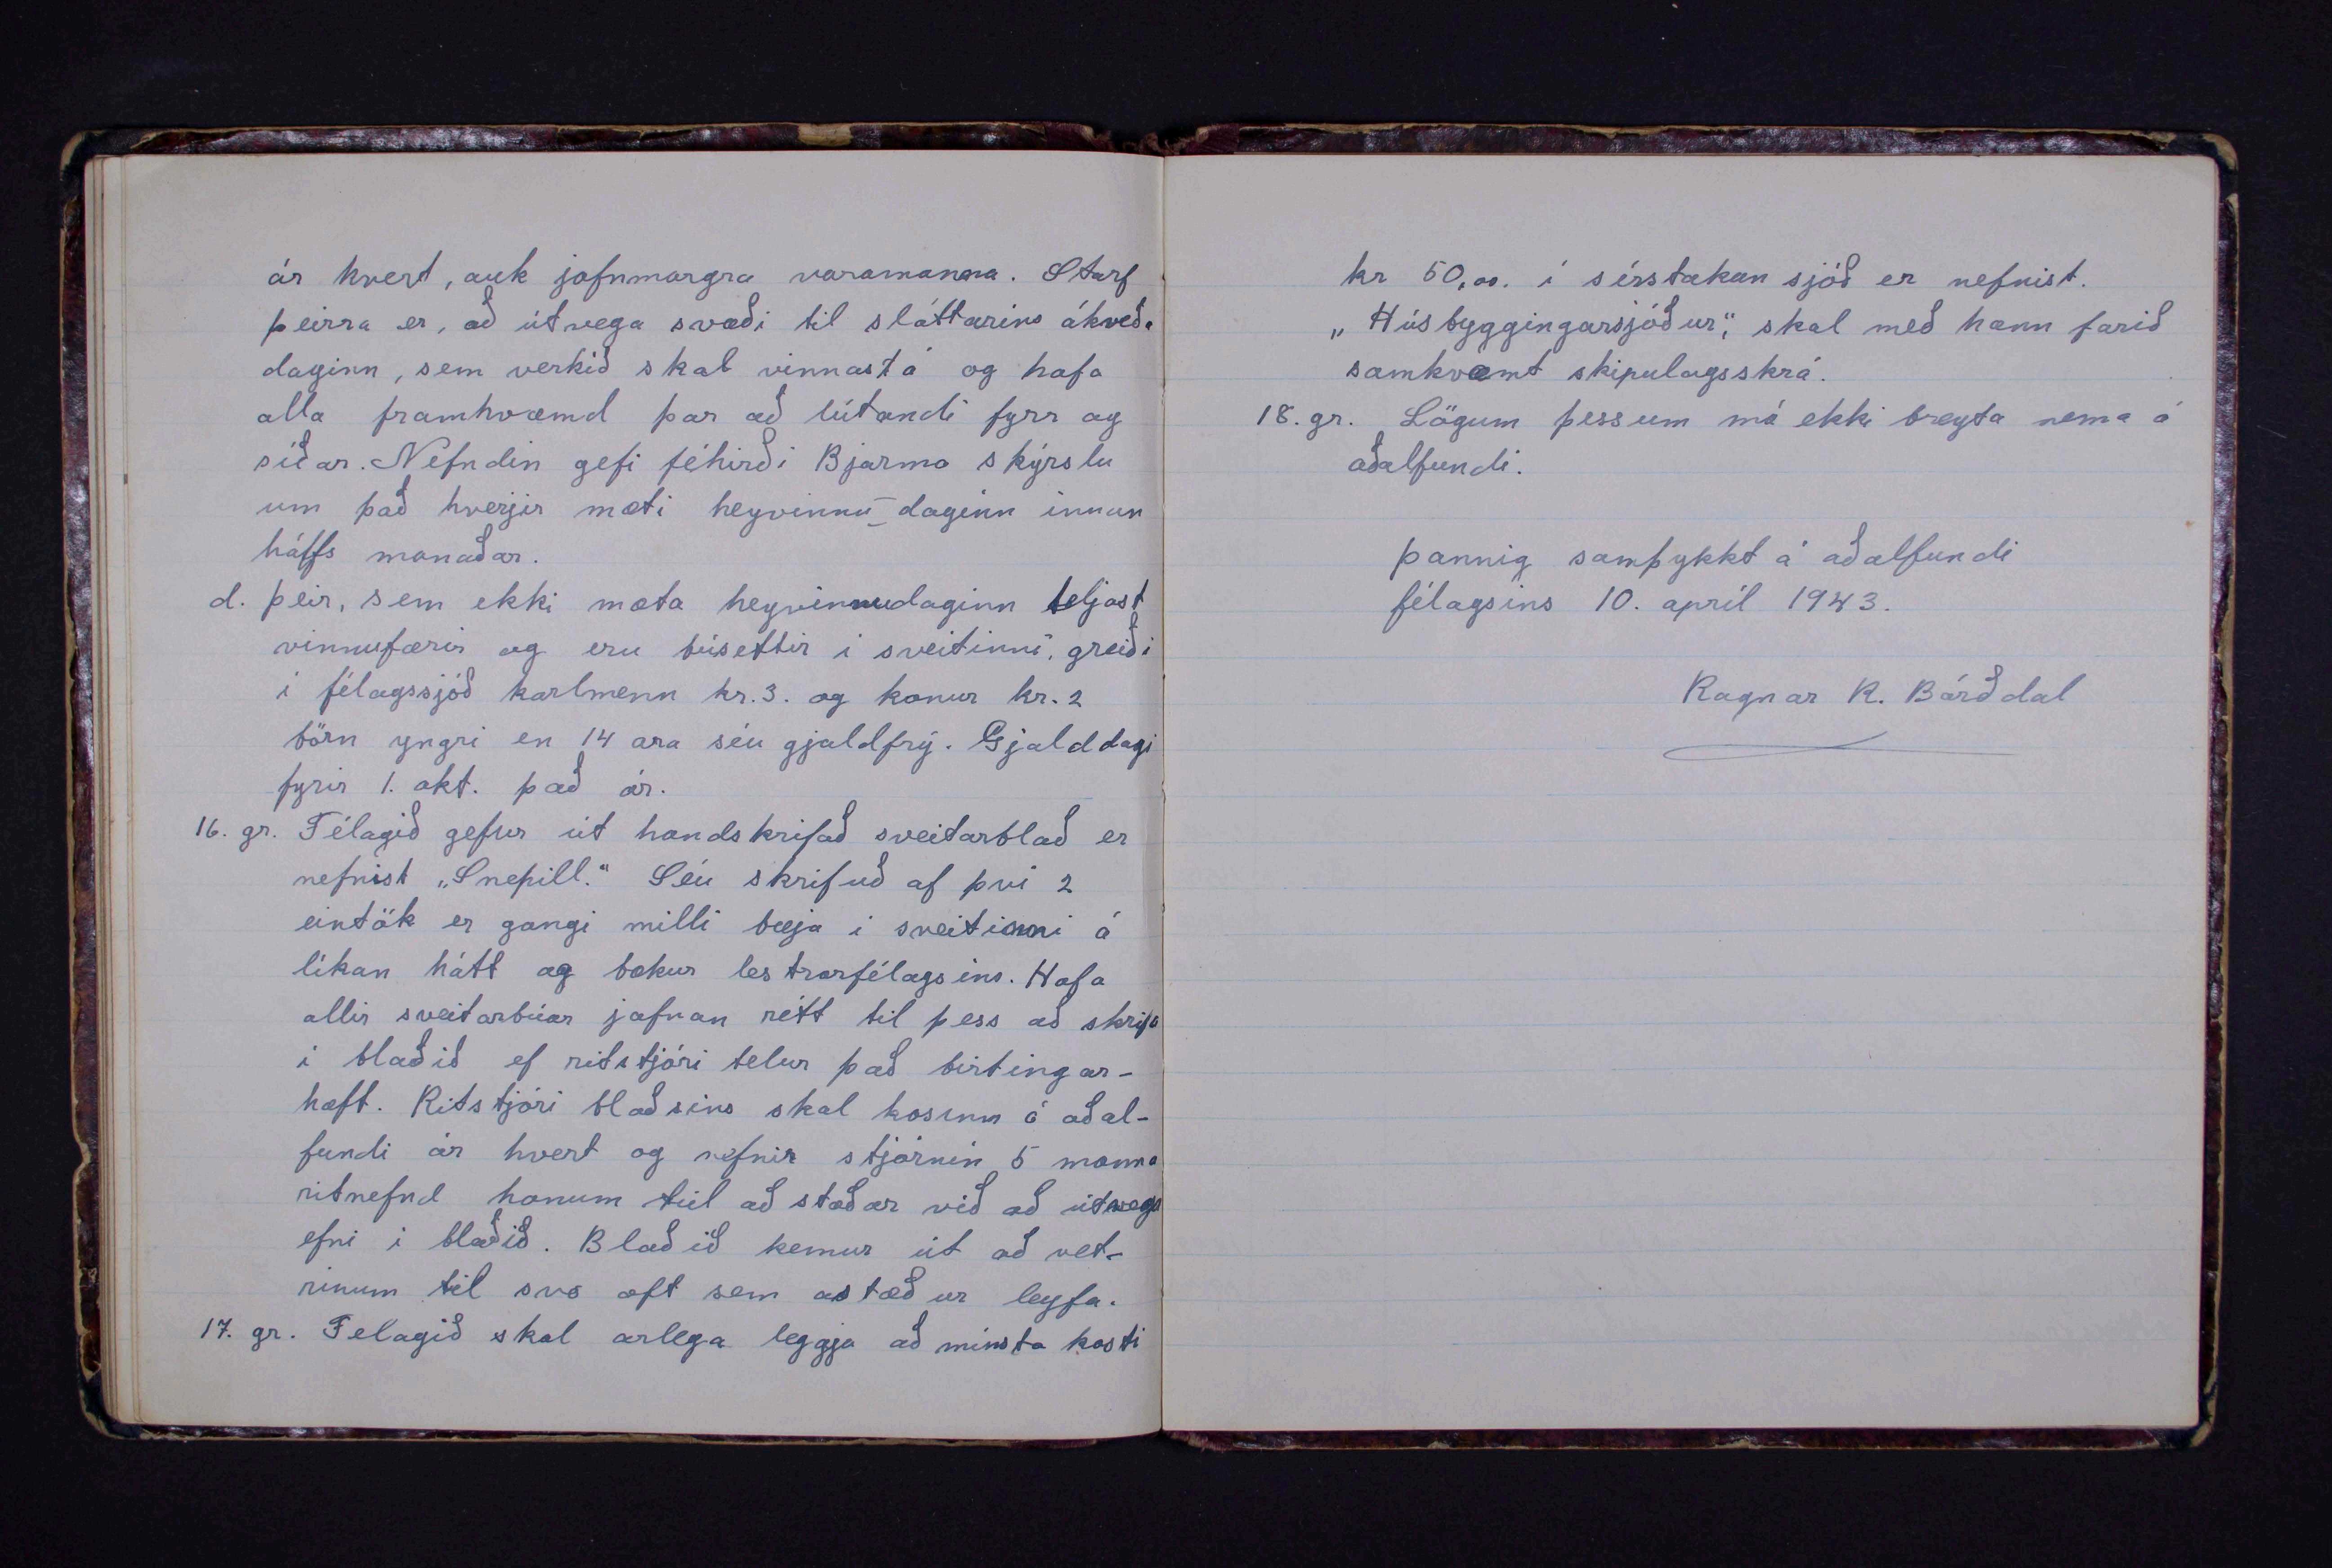 ár hvert, auk jafnmargra varamanna. Starf
þeirra er, að útvega svæði til sláttarins ákveða
daginn, sem verkið skal vinnast á og hafa
alla framkvæmd þar að lútandi fyrr og
síðar. Nefndin gefi féhirði Bjarma skýrslu
um það hverjir mæti heyvinnu-daginn innan
hálfs manaðar.
d. þeir, sem ekki mæta heyvinnudaginn teljast
vinnufærir og eru búsettir i sveitinni, greiði
i félagssjóð karlmenn kr. 3. og konur kr. 2
börn yngri en 14 ara séu gjaldfrý. Gjalddagi
fyrir 1. okt. það ár.
16. gr. Félagið gefur út handskrifað sveitarblað er
nefnist „Snepill.“ Séu skrifuð af þvi 2
eintök er gangi milli bæja i sveitinni á
líkan hátt og bækur lestrarfélagsins. Hafa
allir sveitarbúar jafnan rétt til þess að skrifa
i blaðið ef ritstjóri telur það birtingar-
hæft. Ritstjóri blaðsins skal kosinn á aðal-
fundi ár hvert og nefnir stjórnin 5 manna
ritnefnd honum til aðstoðar við að útvega
efni i blaðið. Blaðið kemur út að vet-
rinum til svo oft sem astæður leyfa.
17. gr. Felagið skal arlega leggja að minsta kosti
kr 50,00. í sérstakan sjóð er nefnist.
„Húsbyggingarsjóður“, skal með hann farið
samkvæmt skipulagsskrá.
18. gr. Lögum þessum má ekki breyta nema á
aðalfundi.
þannig samþykkt á aðalfundi
félagsins 10. apríl 1943.
Ragnar R. Bárðdal